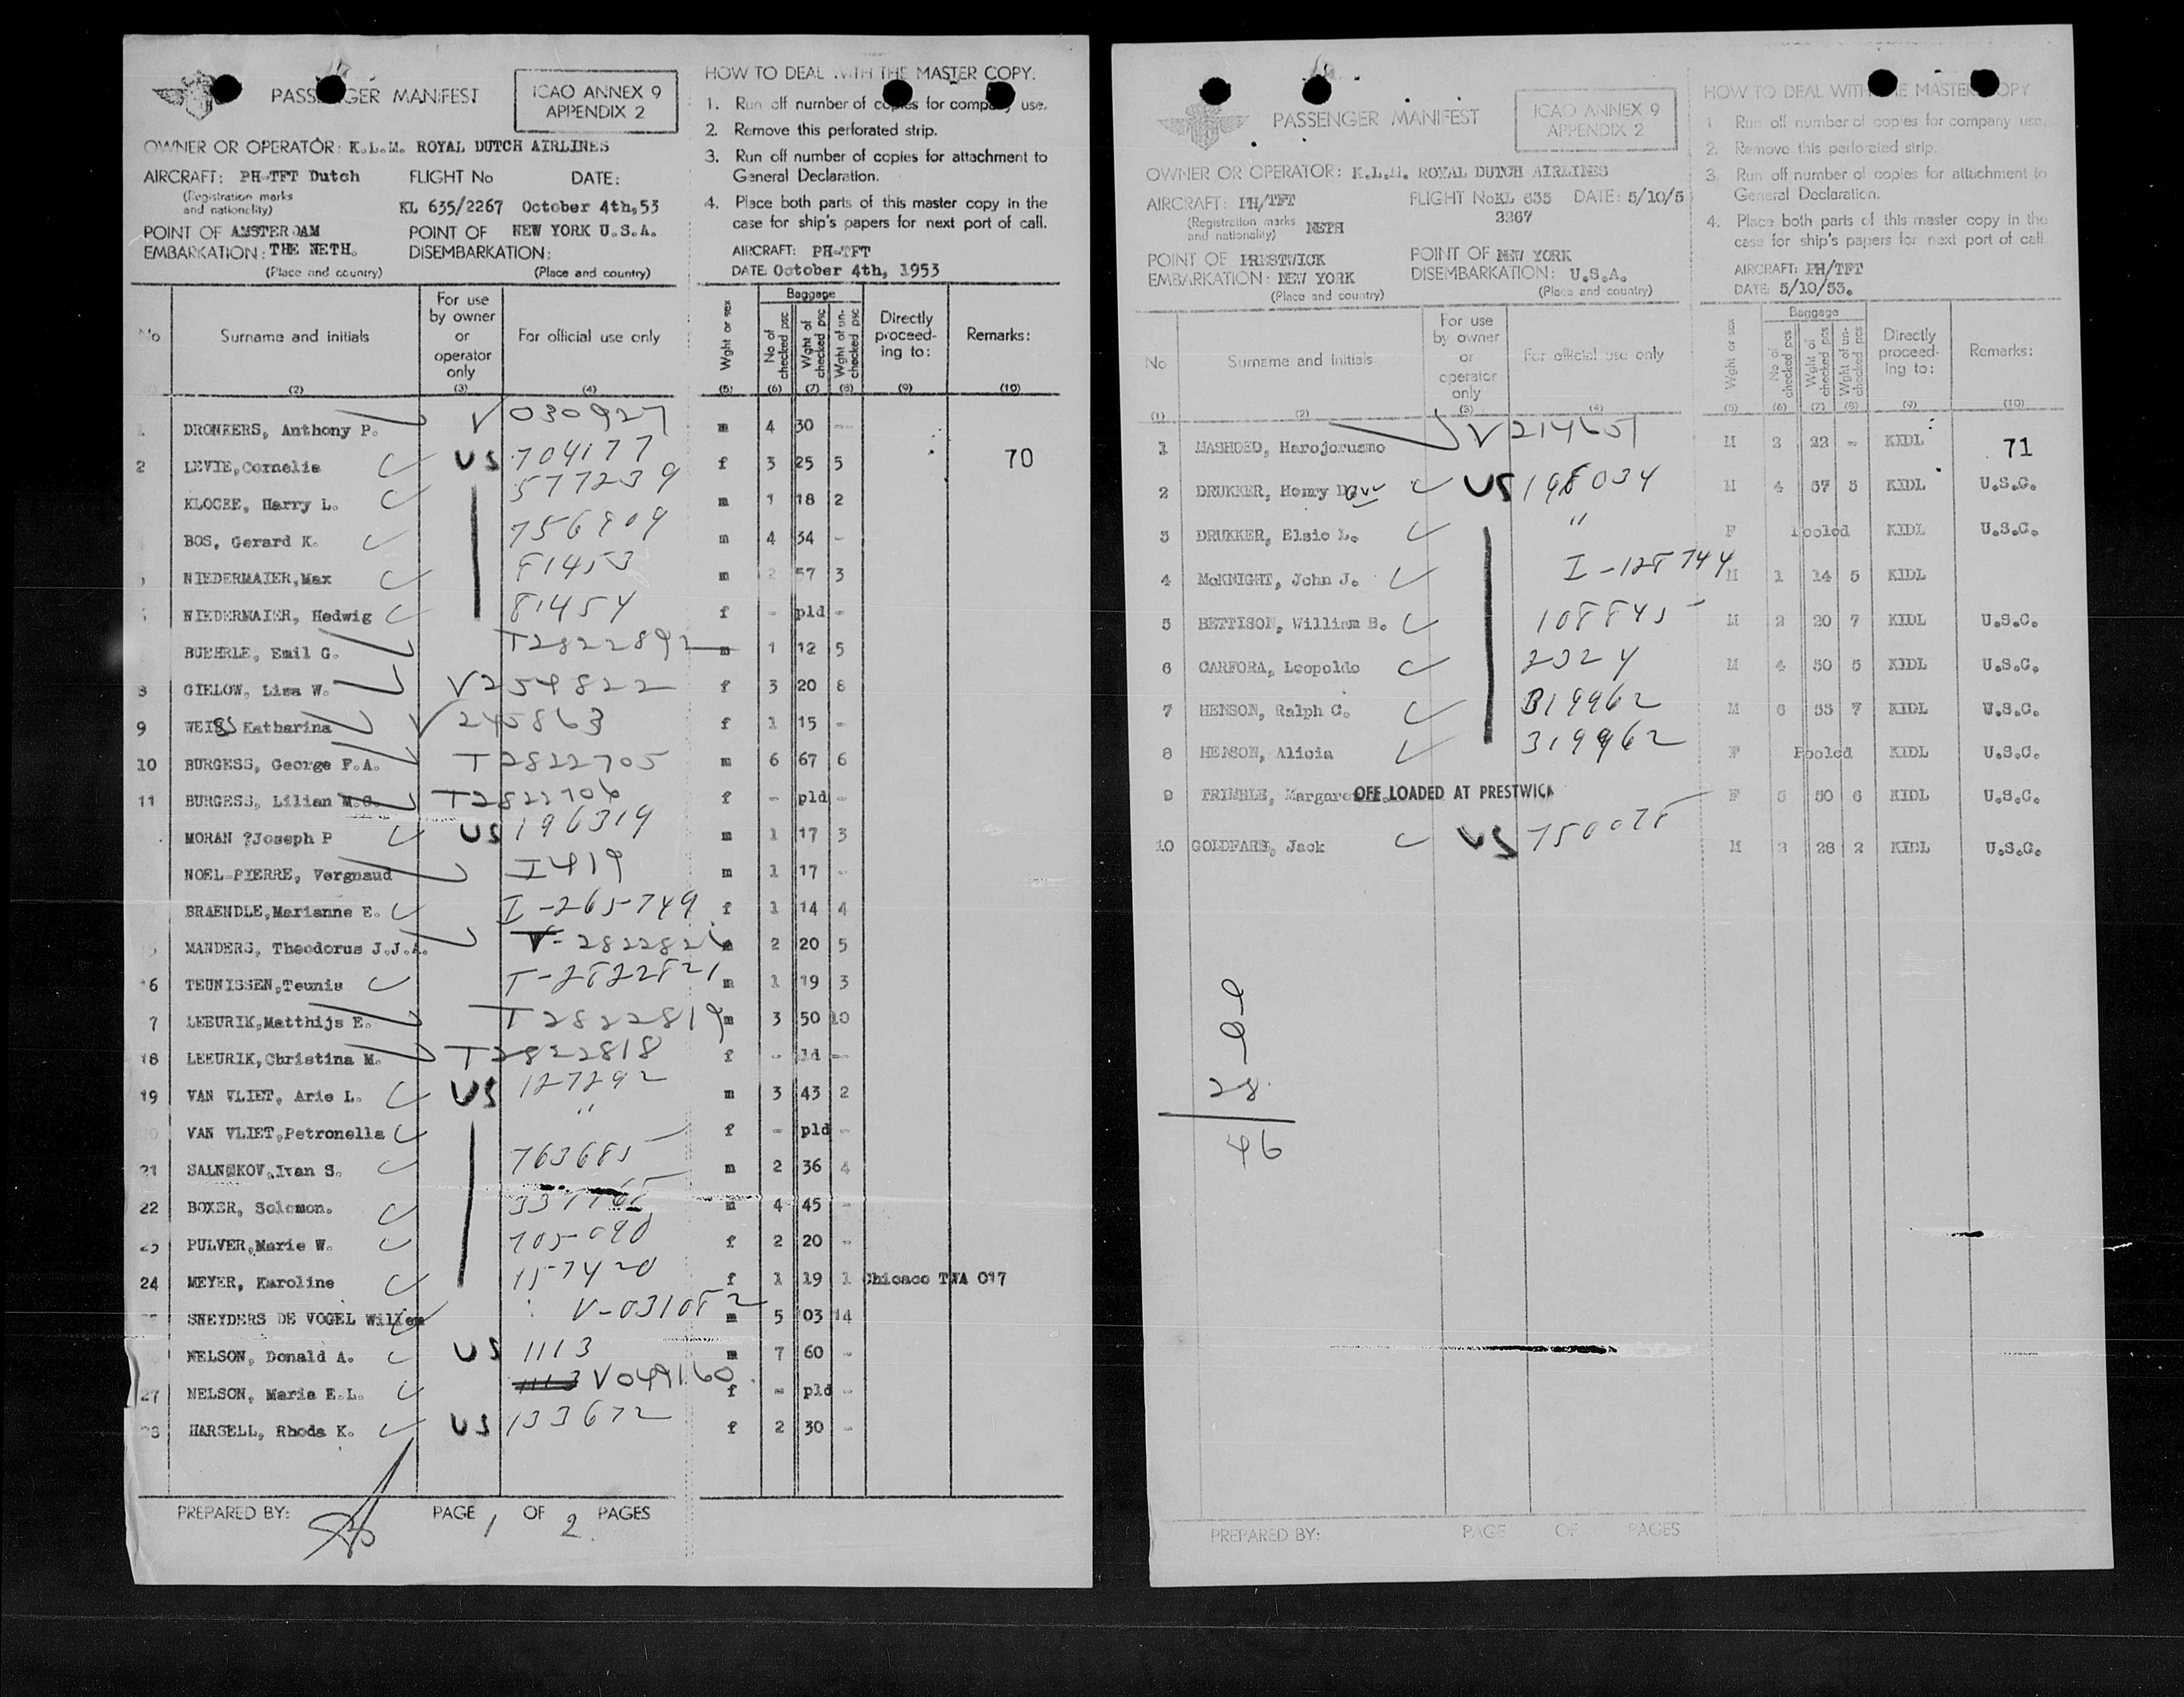 PASSENGER MANIFEST
ICAO ANNEX 9
APPENDIX 2
OWNER OR OPERATOR: K.L.M. ROYAL DUTCH AIRLINES
AIRCRAFT: PH-TFT Dutch FLIGHT No DATE:
(Registration marks
and nationality) KL 635/2267 October 4th,53
POINT OF AMSTERDAM POINT OF NEW YORK U.S.A.
EMBARKATION: THE NETH. DISEMBARKATION:
(Place and country) (Place and country)
HOW TO DEAL WITH THE MASTER COPY.
1. Run off number of copies for company use.
2. Remove this perforated strip.
3. Run off number of copies for attachment to
General Declaration.
4. Place both parts of this master copy in the
case for ship's papers for next port of call.
AIRCRAFT: PH-TFT
DATE: October 4th, 1953
No Surname and initials For use by owner or operator only For official use only Wght or sex Baggage No of checked psc Wght of checked psc Wght of un-checked psc Directly proceed-ing to: Remarks:
(2) (3) (4) (5) (6) (7) (8) (9) (10)
DRONKERS, Anthony P. V 030927 m 4 30 --
2 LEVIE,Cornelia US 704177 f 3 25 5 70
KLOCEE, Harry L. 577239 m 1 18 2
BOS, Gerard K. 756909 m 4 34 -
NIEDERMAIER,Max 81453 m 2 57 3
NIEDERMAIER, Hedwig 81454 f - pld -
BUEHRLE, Emil G. T2822892 m 1 12 5
8 GIELOW, Lisa W. V254822 f 3 20 8
9 WEISS Katharina V 245863 f 1 15 -
10 BURGESS, George F.A. T2822705 m 6 67 6
11 BURGESS, Lilian M.G. T2822706 f - pld -
MORAN ?Joseph P US 196319 m 1 17 3
NOEL-PIERRE, Vergnaud I419 m 1 17 -
BRAENDLE,Marianne E. I-265749 f 1 14 4
MANDERS, Theodorus J.J.A. 2 20 5
16 TEUNISSEN,Teunis T-2822821 m 1 19 3
7 LEEURIK,Matthijs E. T2822819 m 3 50 10
18 LEEURIK,Christina M. T2822818 f - ld --
19 VAN VLIET, Arie L. US 127292 m 3 43 2
VAN VLIET,Petronella " f - pld -
21 SALNEKOV,Ivan S. 763685 m 2 36 4
22 BOXER, Solomon. m 4 45 -
PULVER,Marie W. 705090 f 2 20 -
24 MEYER, Karoline 157420 f 1 19 1 Chicaco TWA 017
SNEYDERS DE VOGEL Willem V-031082 m 5 03 14
NELSON, Donald A. US 1113 m 7 60 -
27 NELSON, Maria E.L. 1113 V049160 f - pld -
HARSELL, Rhoda K. US 133672 f 2 30 -
PREPARED BY: PAGE 1 OF 2 PAGES
PASSENGER MANIFEST
ICAO ANNEX 9
APPENDIX 2
OWNER OR OPERATOR: K.L.M. ROYAL DUTCH AIRLINES
AIRCRAFT: PH/TFT FLIGHT No KL 635 DATE: 5/10/5
(Registration marks
and nationality) NETH 2267
POINT OF PRESTWICK POINT OF NEW YORK
EMBARKATION: NEW YORK DISEMBARKATION: U.S.A.
(Place and country) (Place and country)
HOW TO DEAL WITH THE MASTER COPY
1 Run off number of copies for company use.
2. Remove this perforated strip.
3. Run off number of copies for attachment to
General Declaration.
4. Place both parts of this master copy in the
case for ship's papers for next port of call
AIRCRAFT: PH/TFT
DATE: 5/10/53.
No Surname and initials For use by owner or operator only For official use only Wght or sex Baggage No of checked pcs Wght of checked pcs Wght of un-checked pcs Directly proceed-ing to: Remarks:
(1) (2) (3) (4) (5) (6) (7) (8) (9) (10)
1 MASHOED, Harojorusno V 214651 M 2 22 - KIDL 71
2 DRUKKER, Henry US 198034 M 4 57 5 KIDL U.S.C.
3 DRUKKER, Elsie L. " F Pooled KIDL U.S.C.
4 McKNIGHT, John J. I-128744 M 1 14 5 KIDL
5 BETTISON, William B. 108845 M 2 20 7 KIDL U.S.C.
6 CARFORA, Leopoldo 2324 M 4 50 5 KIDL U.S.C.
7 HENSON, Ralph C. 319962 M 6 53 7 KIDL U.S.C.
8 HENSON, Alicia 319962 F Pooled KIDL U.S.C.
9 TRIMBLE, Margaret OFF LOADED AT PRESTWICK F 5 50 6 KIDL U.S.C.
10 GOLDFARB, Jack US 750078 M 3 28 2 KIDL U.S.C.
28
46
PREPARED BY: PAGE OF PAGES